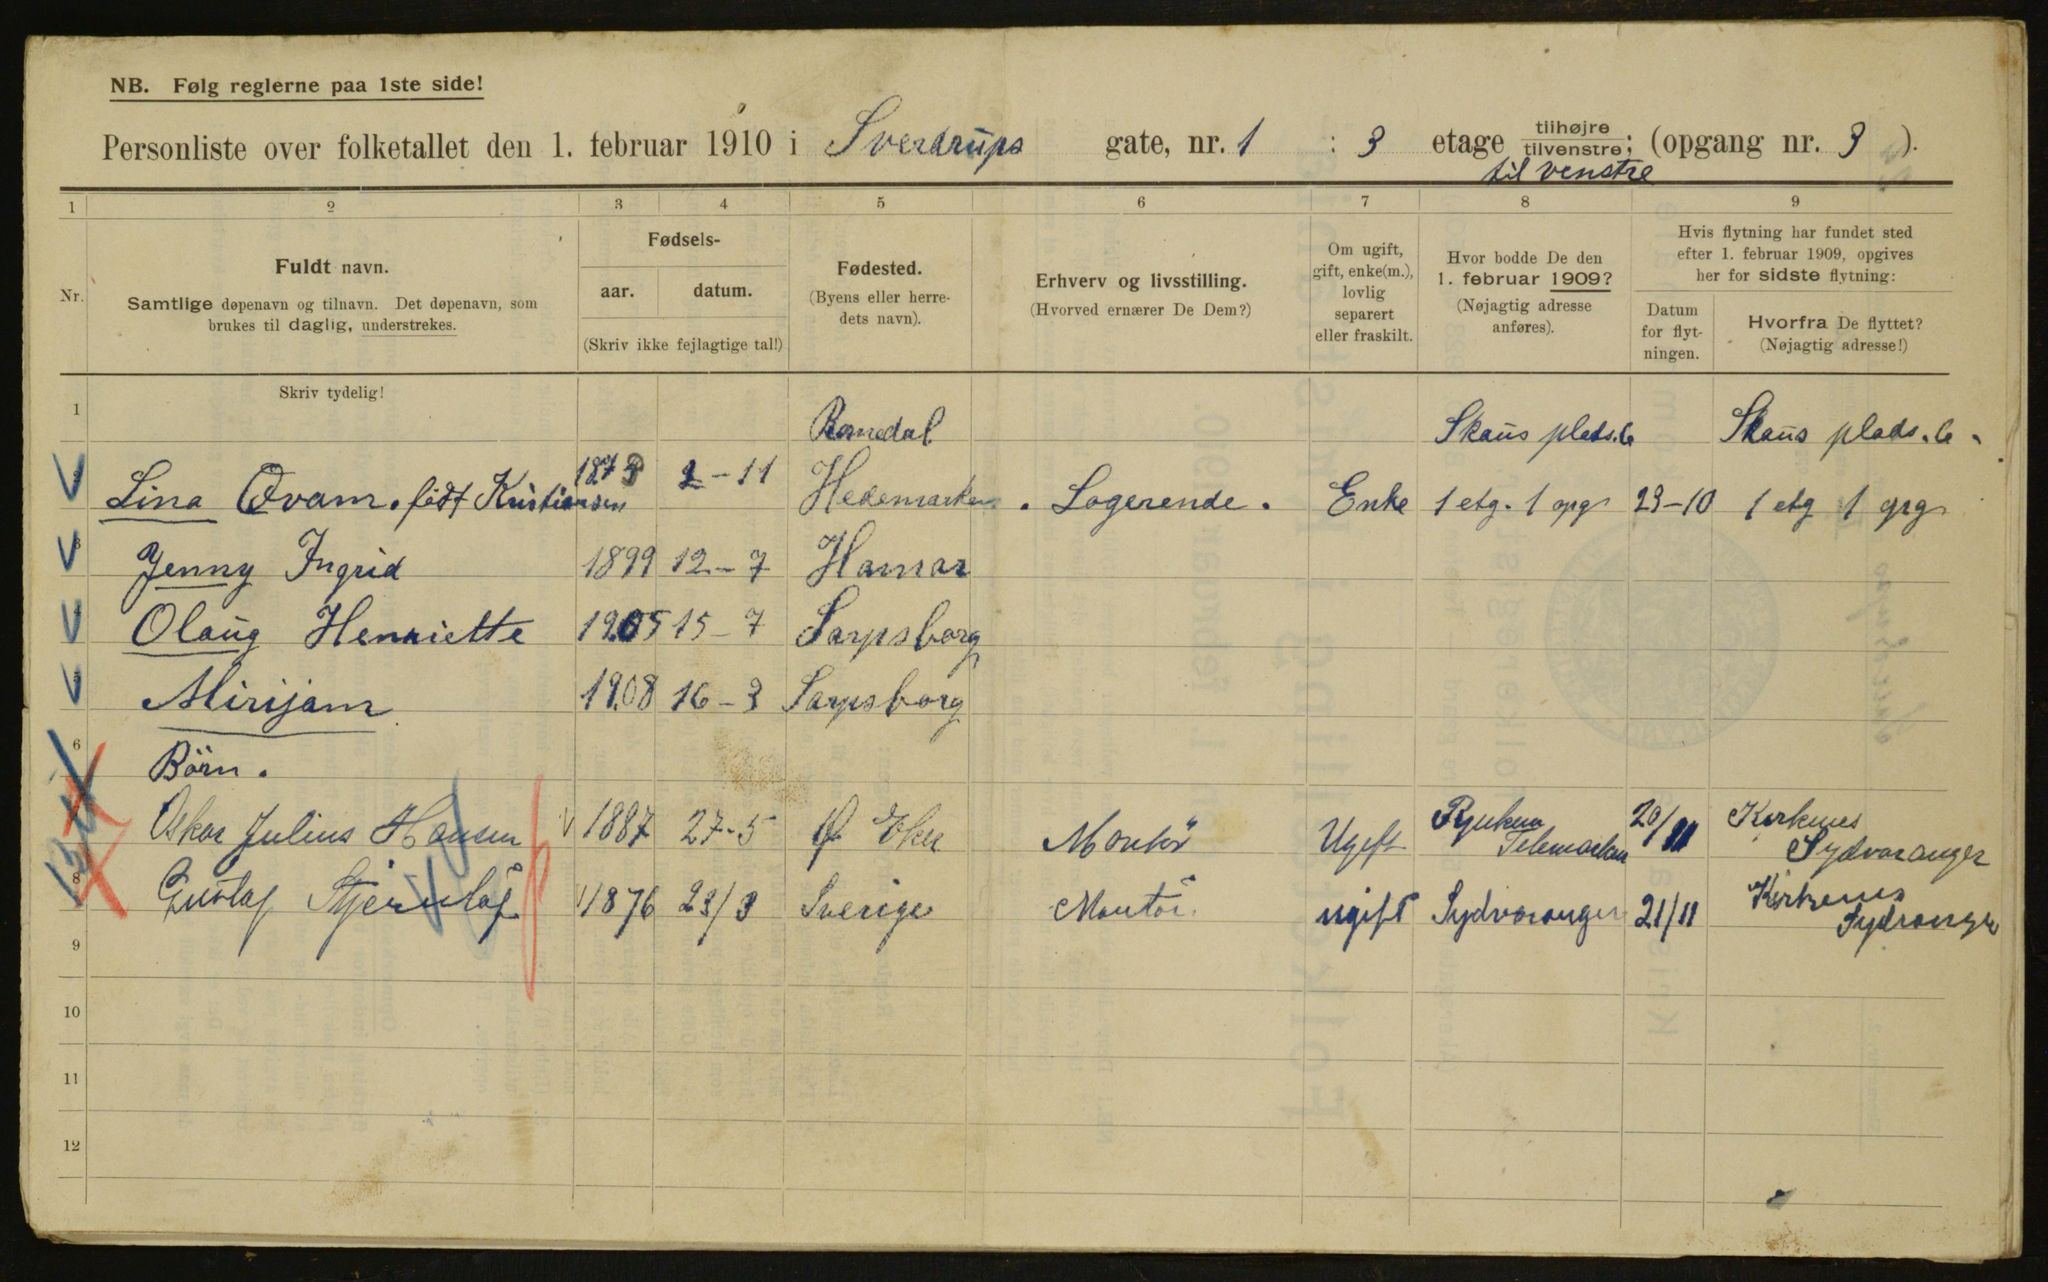 NB. Følg reglerne paa 1ste side!
Personliste over folketallet den 1. februar 1910 i Sverdrups gate, nr. 1 : 3 etage tilhøjre tilvenstre; (opgang nr. 3 ).
til venstre
1 2 3 4 5 6 7 8 9
Nr.
Fuldt navn.
Samtlige døpenavn og tilnavn. Det døpenavn, som
brukes til daglig, understrekes.
Fødsels-
aar. datum.
(Skriv ikke fejlagtige tal!)
Fødested.
(Byens eller herre-
dets navn).
Erhverv og livsstilling.
(Hvorved ernærer De Dem?)
Om ugift,
gift, enke(m.),
lovlig
separert
eller fraskilt.
Hvor bodde De den
1. februar 1909?
(Nøjagtig adresse
anføres).
Hvis flytning har fundet sted
efter 1. februar 1909, opgives
her for sidste flytning:
Datum
for flyt-
ningen.
Hvorfra De flyttet?
(Nøjagtig adresse!)
Skriv tydelig!
1 Romedal Skaus plads. 6 Skaus plads. 6.
Lina Qvam. født Kristiansen 1873 2-11 Hedemarken. Logerende. Enke 1 etg. 1 opg 23-10 1 etg 1 opg
3 Jenny Ingrid 1899 12-7 Hamar
4 Olaug Henriette 1905 15-7 Sarpsborg
5 Mirijam 1908 16-3 Sarpsborg
6 Børn.
Oskar Julius Hansen 1887 27-5 Ø Eker Montør Ugift Rjukan Telemarken 20/11 Kirkenes Sydvaranger
8 Gustaf Stjernlöf 1876 23/3 Sverige Montör ugift Sydvaranger 21/11 Kirkenes Sydvaranger
9
10
11
12